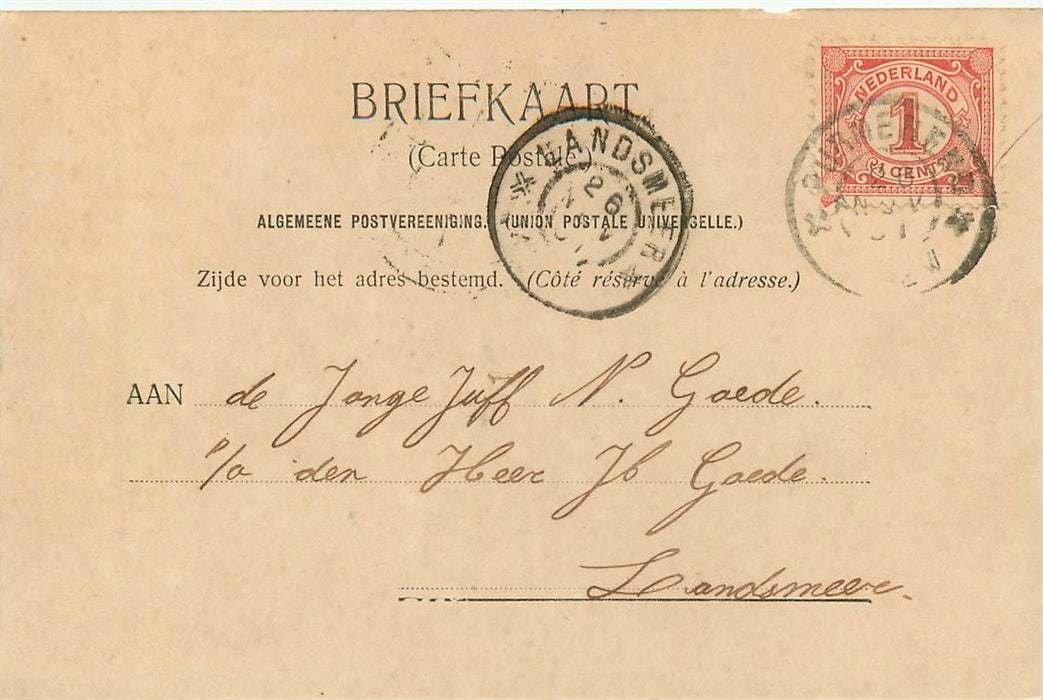 BRIEFKAART
(Carte Postale)
ALGEMEENE POSTVEREENIGING. (UNION POSTALE UNIVERSELLE.)
Zijde voor het adres bestemd. (Côté réservé à l'adresse.)
NEDERLAND
1
CENT
LANDSMEER
26
AAN de Jonge Juff N. Goede.
p/a den Heer Jb Goede.
Landsmeer.